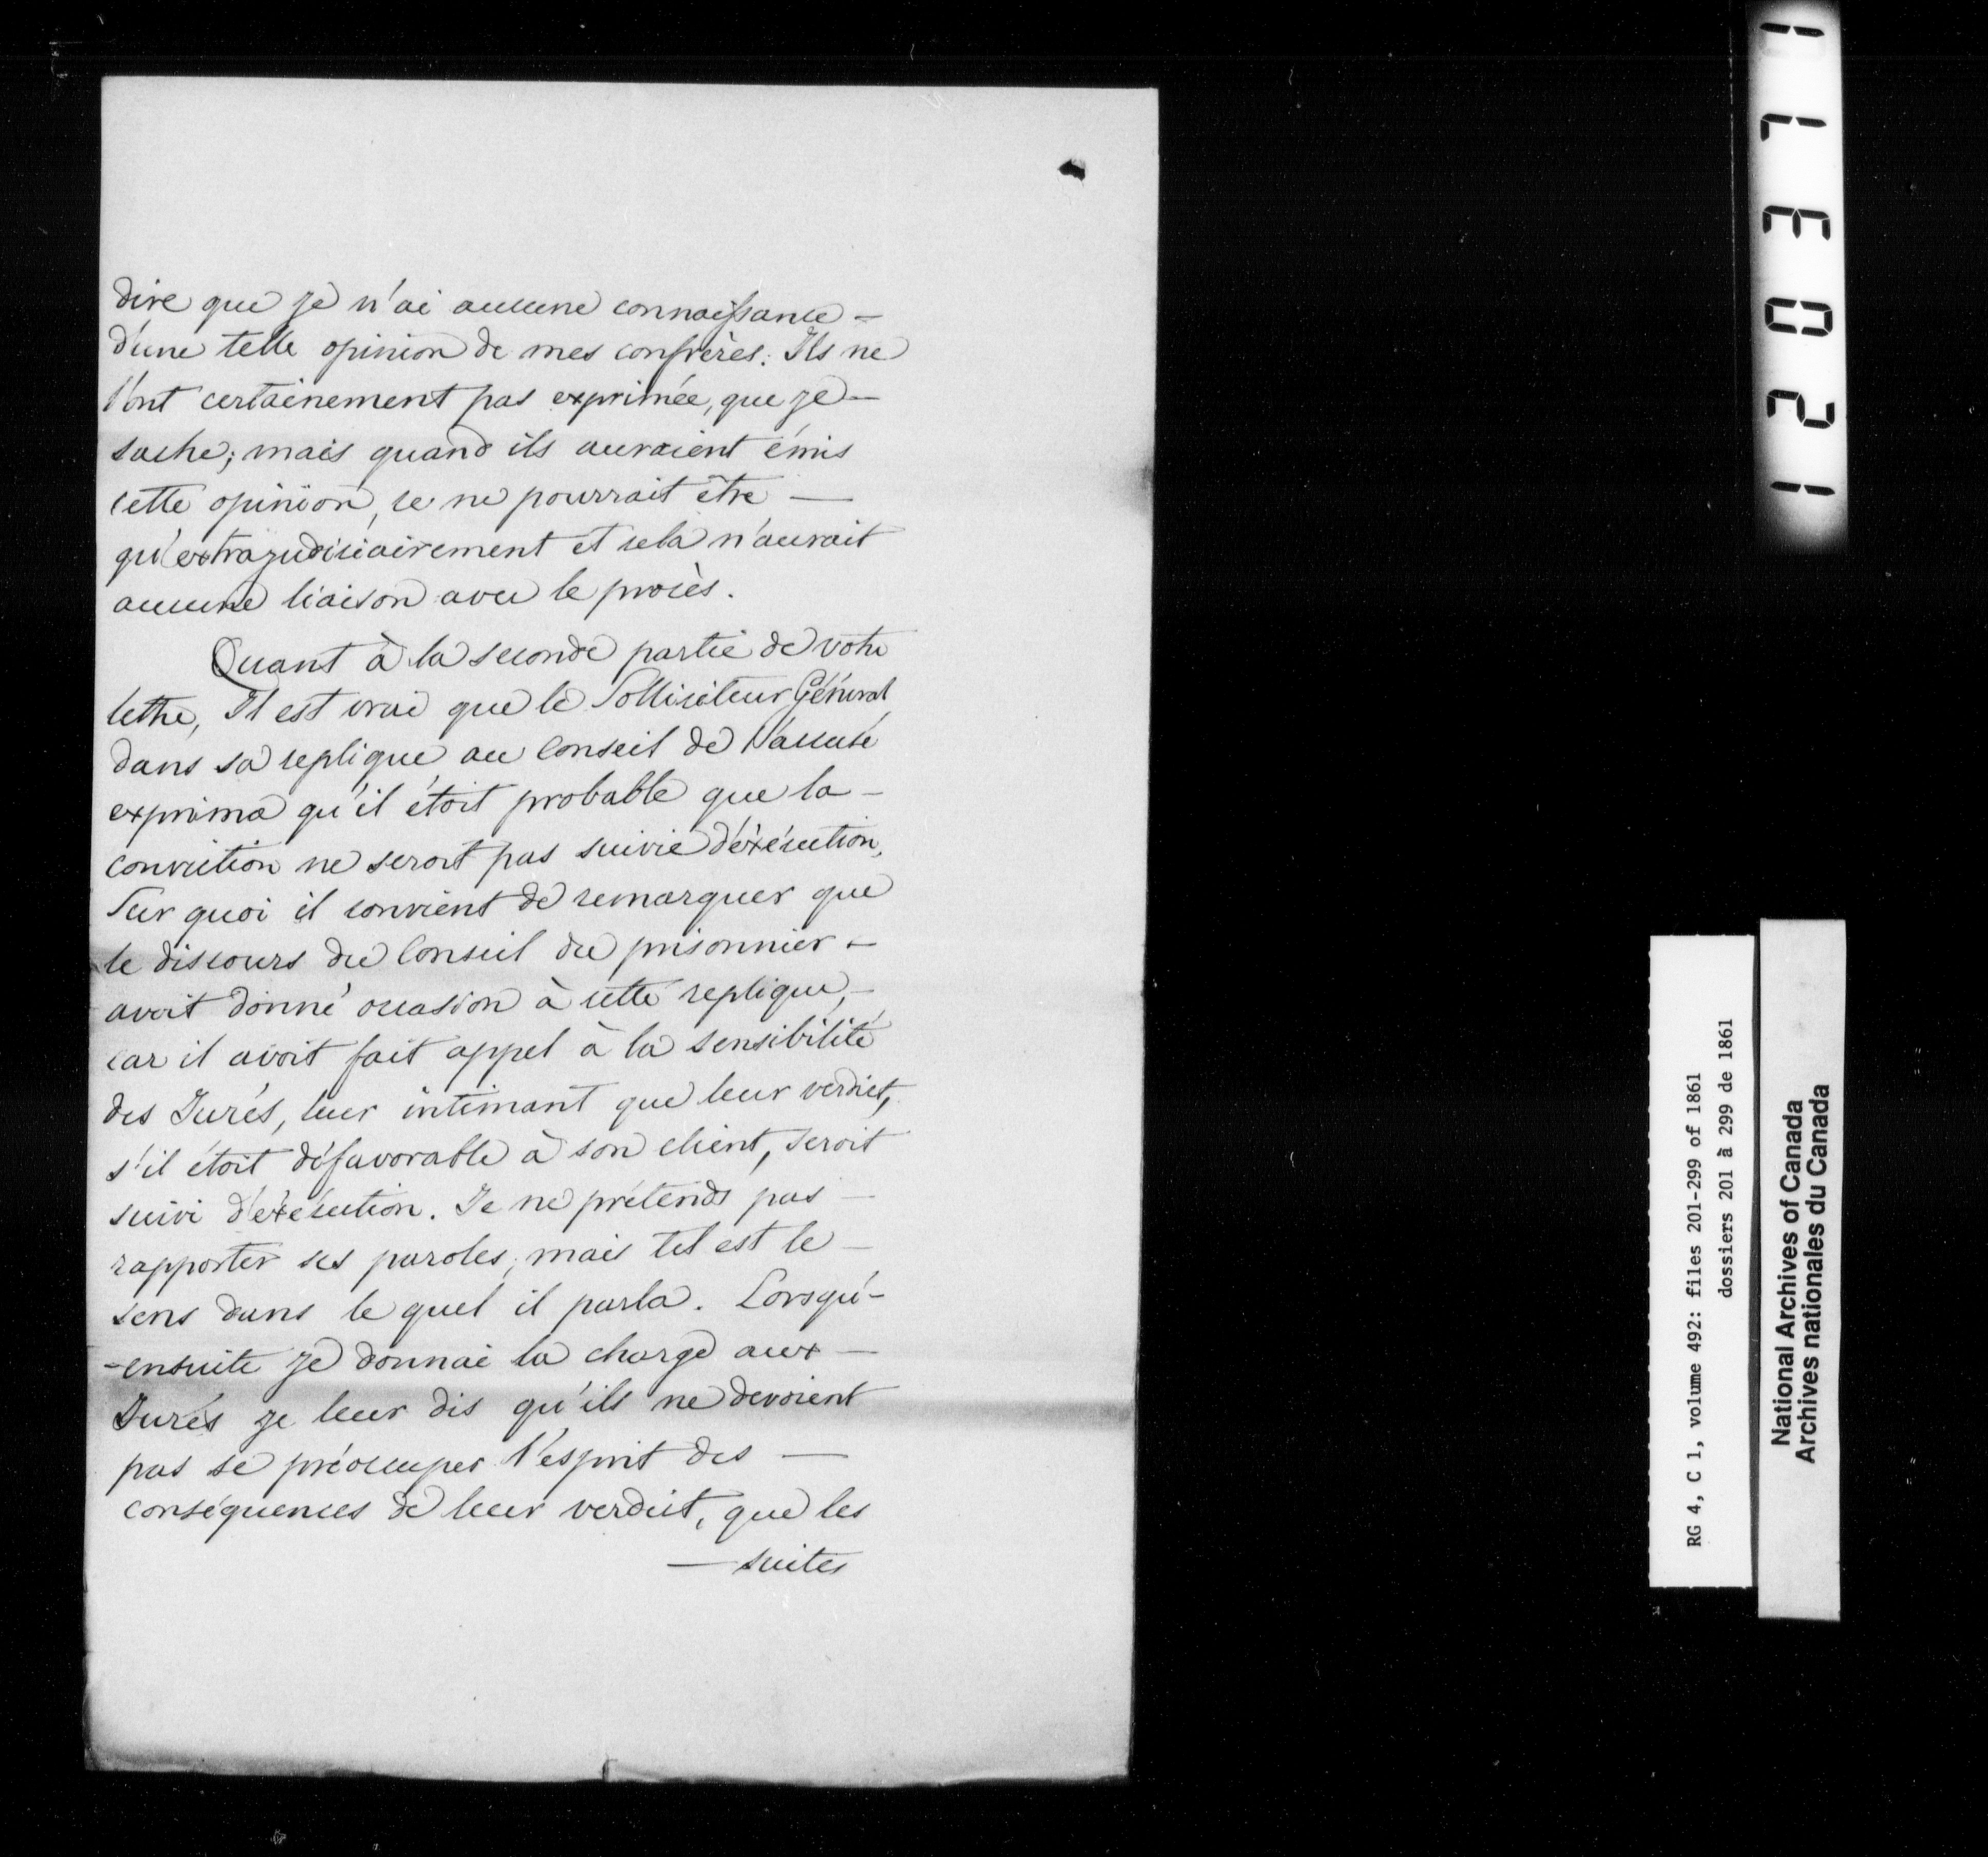 dire que je n'ai aucune connaissance –
d'une telle opinion de mes confrères. Ils ne
l'ont certainement pas exprimée, que je –
sache; mais quand ils auraient émis
cette opinion, ce ne pourrait être —
qu'extrajudiciairement et cela n'aurait
aucune liaison avec le procès.
Quant à la seconde partie de votre
lettre, Il est vrai que le Solliciteur Général
dans sa replique au Conseil de l'accusé
exprima qu'il étoit probable que la –
conviction ne seroit pas suivie d'éxécution,
Sur quoi il convient de remarquer que
le discours du Conseil du prisonnier –
avoit donné occasion à cette replique, –
car il avoit fait appel à la sensibilité
des Jurés, leur intimant que leur verdict,
s'il étoit défavorable à son client, seroit
suivi d'éxécution. Je ne prétends pas –
rapporter ses paroles, mais tel est le –
sens dans le quel il parla. Lorsqu'-
-ensuite je donnai la charge aux —
Jurés je leur dis qu'ils ne devoient
pas se préoccuper l'esprit des —
conséquences de leur verdict, que les
— suites
1 7 E 0 2 1
RG 4, C 1, volume 492: files 201-299 of 1861
dossiers 201 à 299 de 1861
National Archives of Canada
Archives nationales du Canada